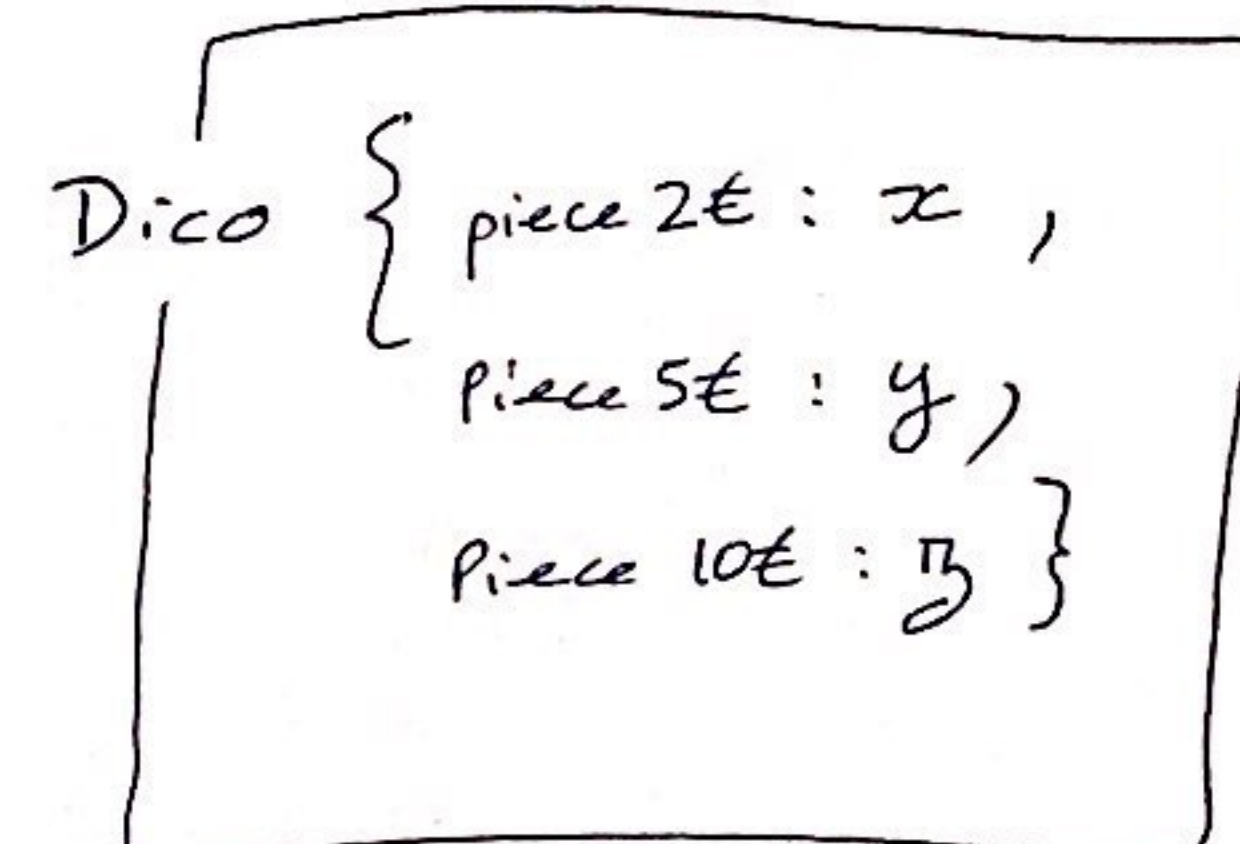 Dico { piece 2€ : x ,
Piece 5€ : y ,
Piece 10€ : z }